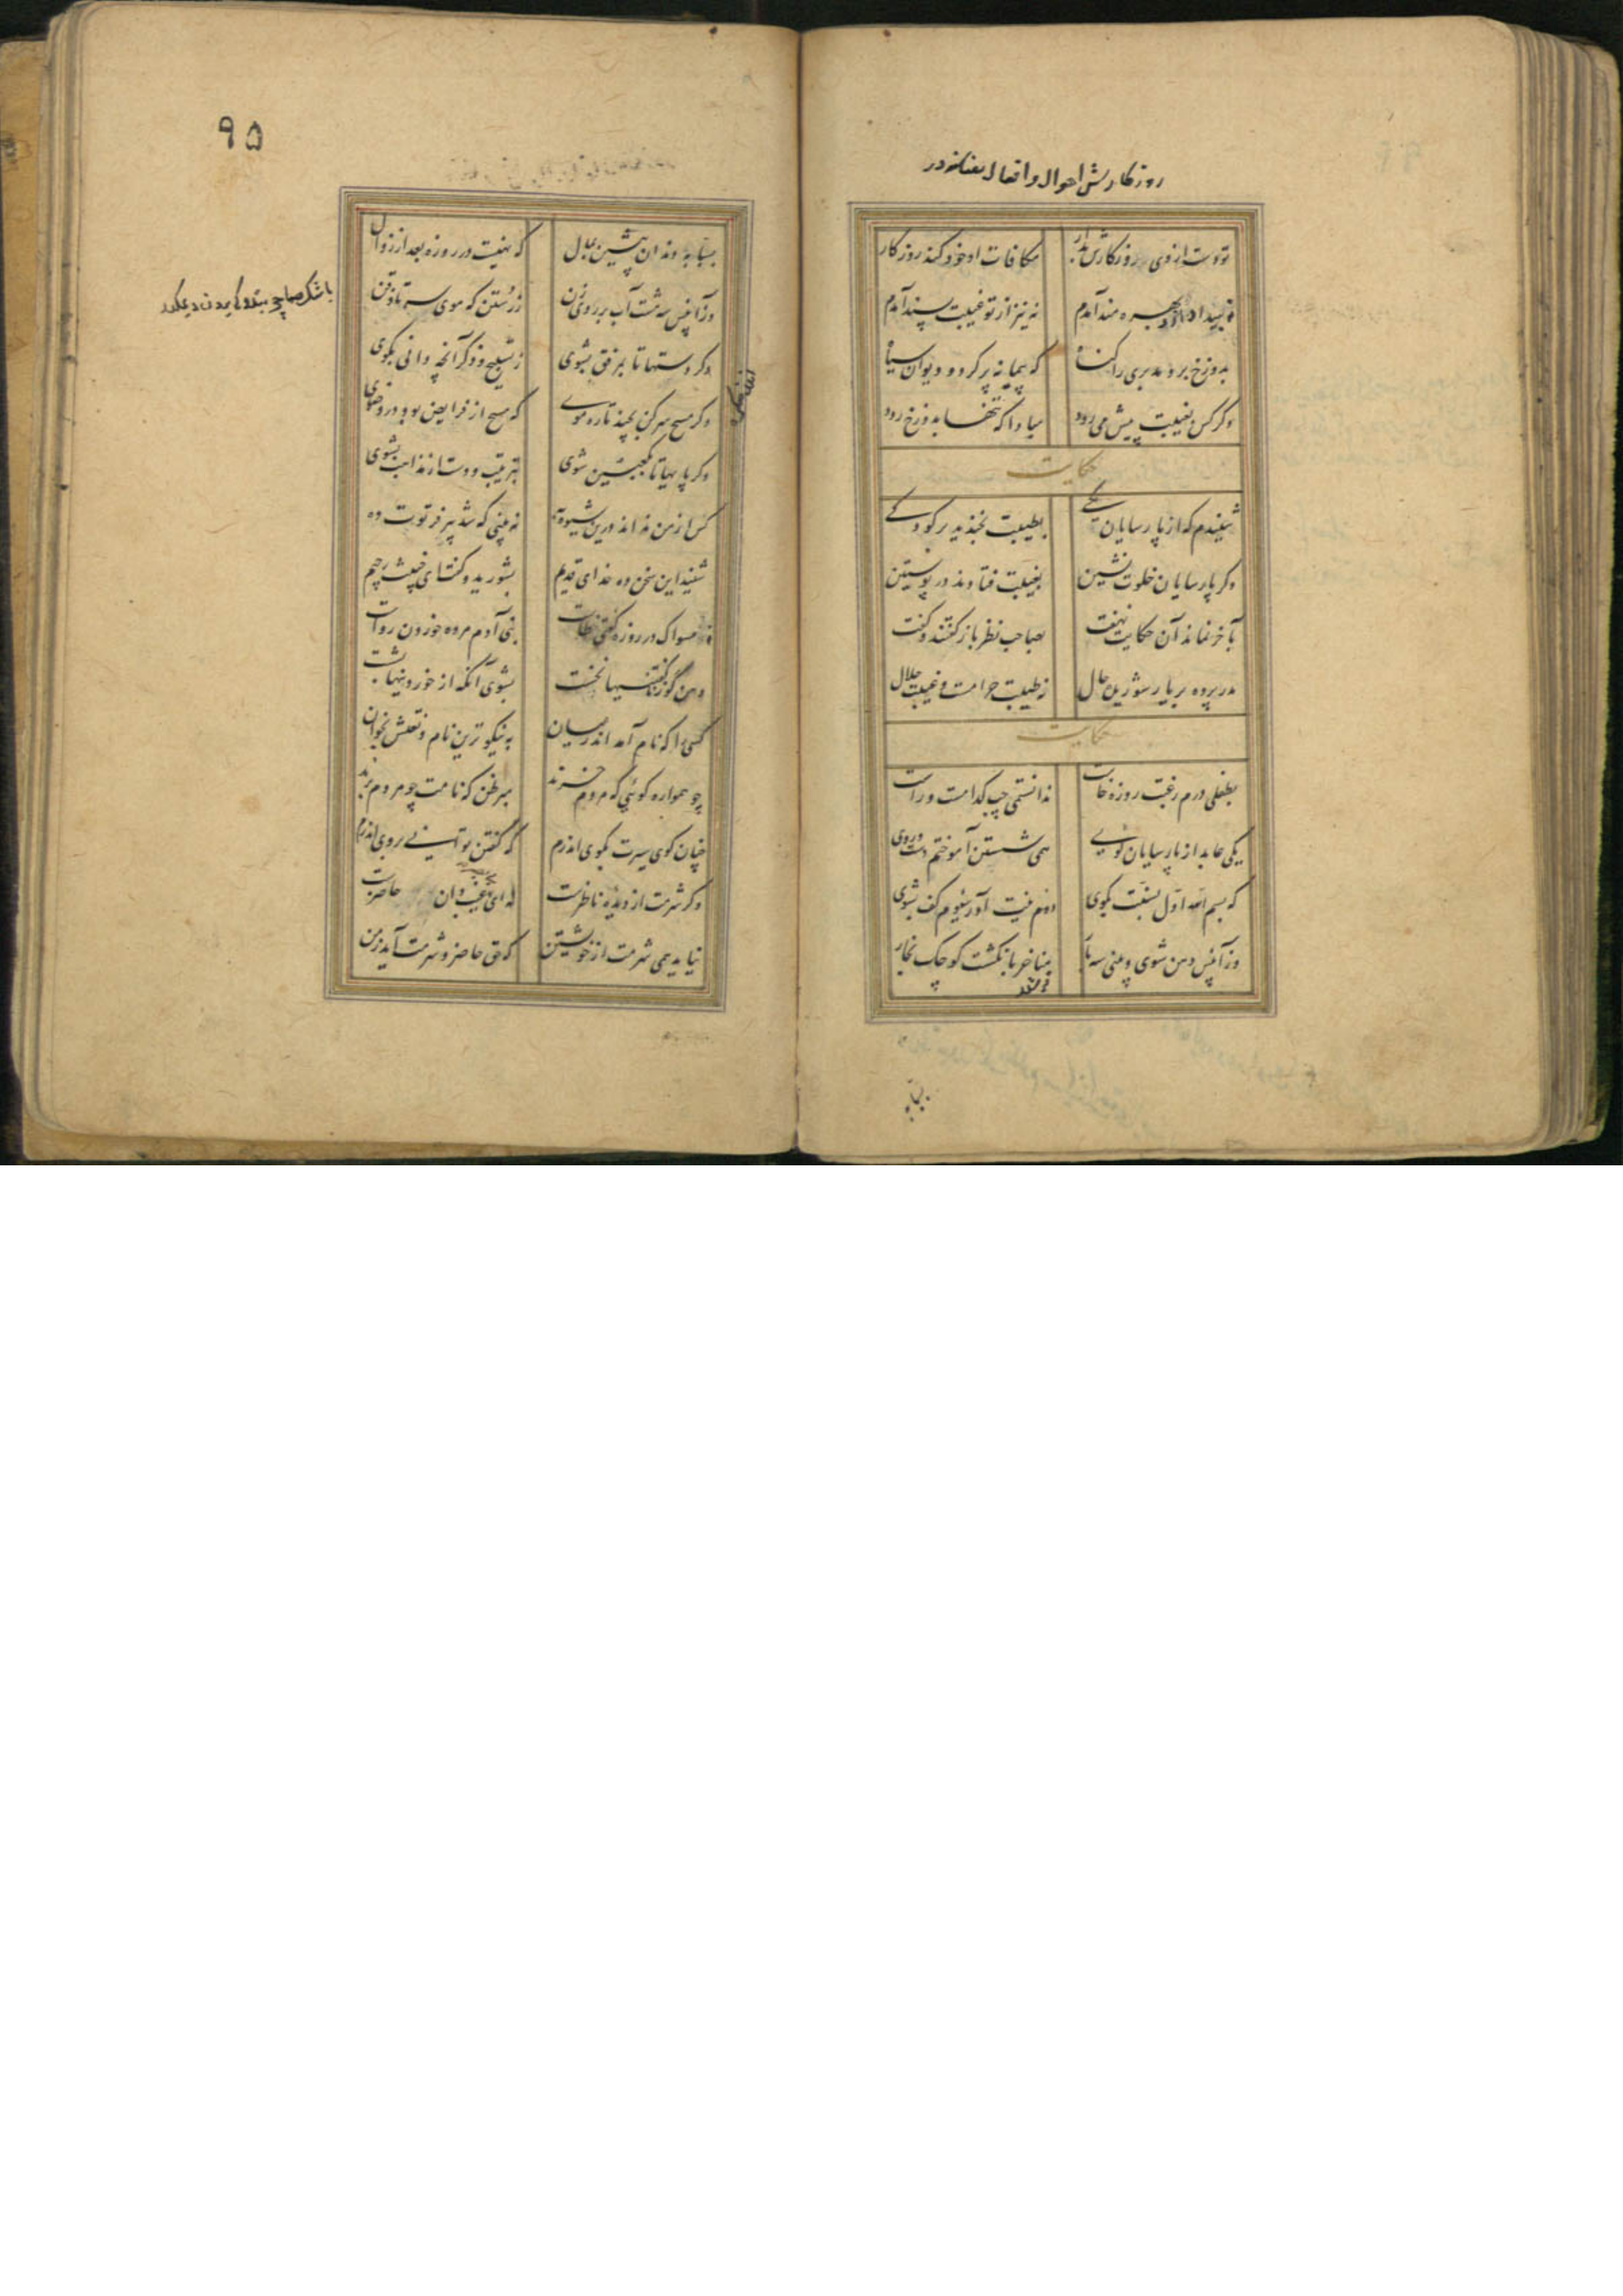 روزکارش احوال و افعال
تو دست از وی و روزکارش بدار مکافات او خود کند روزکار
نه بیداد ازو بهره مند آیدم نه نیز از تو غیبت پسند آیدم
بدوزخ برد مدبری را کناه که پیمانه پر کرد و دیوان سیاه
دکر کس بغیبت پیش می رود مبادا که تنها بدوزخ رود
حکایت
شنیدم که از پارسایان یکی بطیبت بخندید بر کودکی
دکر پارسایان خلوت نشین بغیبت فتادند در پوستین
بآخر نماند آن حکایت نهفت بصاحب نظر باز کفتند و کفت
مدر پرده بر یار شوریده حال ز طیبت حرامست و غیبت حلال
حکایت
بطفلی درم رغبت روزه خاست ندانستمی چپ کدامست و راست
یکی عابد از پارسایان کوی همی شستن آموختم دست و روی
که بسم الله اول بسنت بکوی دوم نیت آور سیوم کف بشوی
وز آنپس دهن شوی و بینی سه بار مناخر بانکشت کوچک بخار
بسبابه
۹۵
بسبابه دندان پیشین بمال که نهیست در روزه بعد از زوال
وز آنپس سه مشت آب بر روی زن ز رستن که موی سر تا ذقن
دکر دستها تا بمرفق بشوی ز تسبیح و ذکر آنچه دانی بکوی
دکر مسح سر کن بچند تاره موی که مسح از فرایض بود در وضوی
دکر پایها تا بکعبین شوی بترتیب ودستار
کس از من نداند درین شیوه به نه بینی که شد پیر فرتوت ده
شنید این سخن ده خدای قدیم بشورید و کفت ای خبیث رجیم
نه مسواک در روزه کفتی خطاست بنی آدم مرده خوردن رواست
دهن کو ز ناکفتنیها نخست بشوی آنکه از خوردنیها بشست
کسی را که نام آمد اندر میان به نیکوترین نام و نعتش بخوان
چو همواره کوئی که مردم خرند مبر ظن که نامت چو مردم برند
چنان کوی سیرت بکوی اندرم که کفتن توانی بروی اندرم
وکر شرمت از دیده ناظرست نه ای بی بصر غیب دان حاضرست
نیاید همی شرمت از خویشتن که حق حاضر و شرمت آید ز من